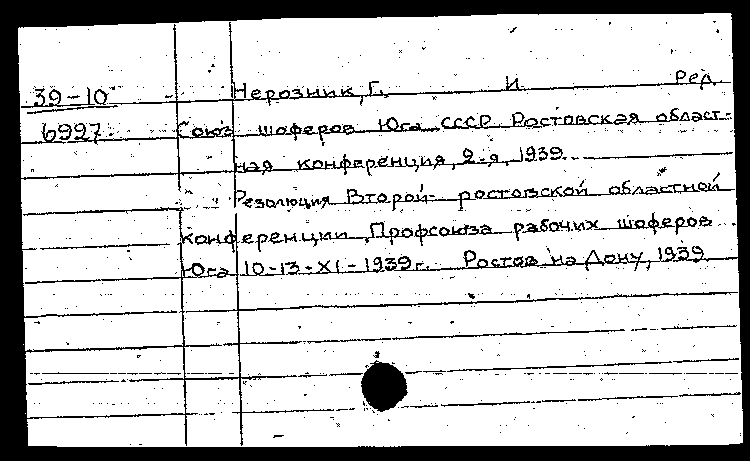 39-10 Нерозник, Г. И Ред.
6997 Союз шоферов Юга СССР Ростовская област-
ная конференция, 2-я, 1939.
Резолюция Второй ростовской областной
конференции Профсоюза рабочих шоферов
Юга 10-13-XI-1939 г. Ростов на Дону, 1939